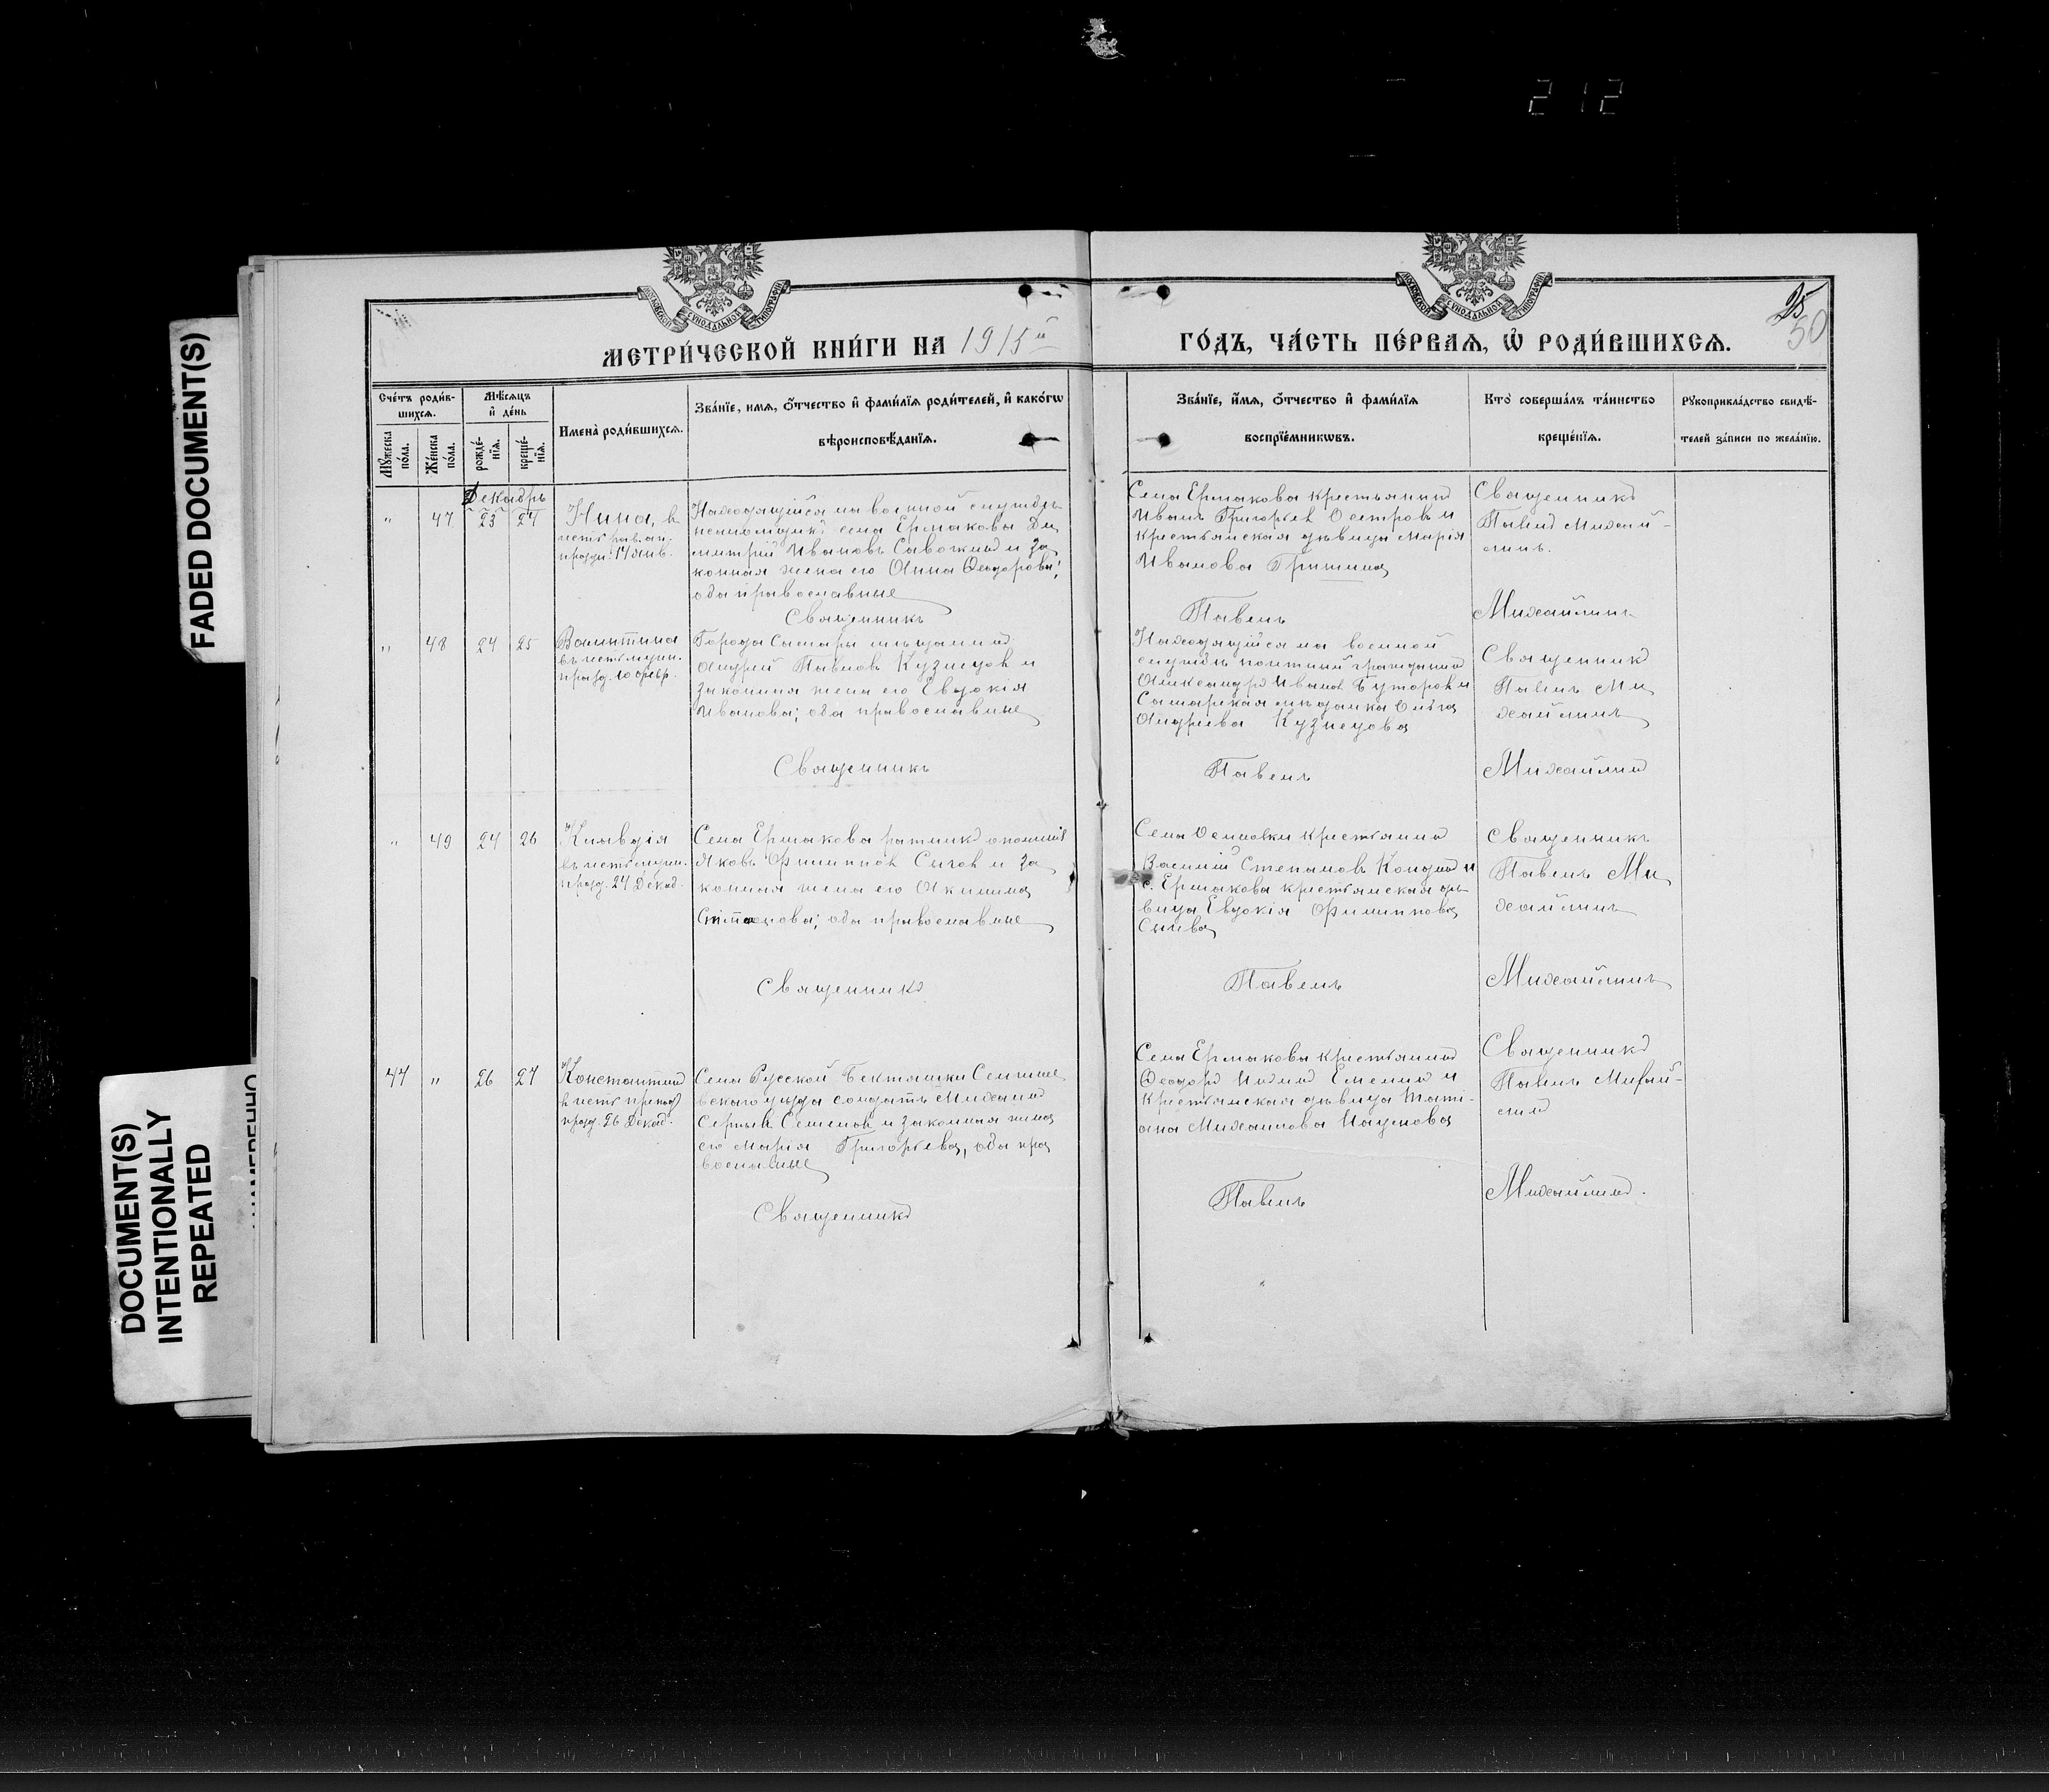 212
FADED DOCUMENT(S)
DOCUMENT(S)
INTENTIONALLY
REPEATED
МОСКОВСКОЙ СѴНОДАЛЬНОЙ ТИПОГРАФІИ
МОСКОВСКОЙ СѴНОДАЛЬНОЙ ТИПОГРАФІИ
25
50
МЕТРИ́ЧЕСКОЙ КНИ́ГИ НА 1915й
ГО́ДЪ, ЧА́СТЬ ПЕ́РВАѦ, Ѡ҆ РОДИ́ВШИХСѦ.
Сче́тъ роди́в-
шихсѧ.
Мꙋ́жеска
по́ла.
Же́нска
по́ла.
Мѣ́сѧцъ
и҆ де́нь
рожде́-
нїѧ.
креще́-
нїѧ.
Имена̀ роди́вшихсѧ.
Зва́нїе, имѧ, ѻ҆́тчество и҆ фами́лїѧ роди́телей, и҆ како́гѡ
вѣроисповѣ́данїѧ.
Зва́нїе, и҆́мѧ, ѻ҆́тчество и҆ фами́лїѧ
воспрїе́мникѡвъ.
Кто̀ соверша́лъ та́инство
креще́нїѧ.
Рꙋкоприкла́дство свидѣ́-
телей за́писи по жела́нїю.
Декабрь
" 47 23 27
Нина, в
честь рав. ап.
празд. 14 янв.
Находящійся на военной службѣ
села Ермакова Ди
митрій Ивановъ и за
конная жена его Анна Ѳеодорова;
оба православные
Села Ермакова крестьянинъ
Иванъ Григорьев Осетровъ и
крестьянская дѣвица Марія
Иванова Гришина
Священникъ
Павелъ Михай-
линъ.
Священникъ Павелъ Михайлинъ
" 48 24 25
Валентина
въ честь мучен.
празд. 10 февр.
Города Самары мѣщанинъ
Андрей Павловъ Кузнецов и
законная жена его Евдокія
Иванова; оба православные
Находящійся на военной
службѣ почтный гражданинъ
Александръ Иванов Буторов и
Самарская мѣщанка Ольга
Андреева Кузнецова
Священникъ
Павелъ Ми
хайлинъ
Священникъ Павелъ Михайлинъ
" 49 24 26
Клавдія
въ честь мучен.
празд. 24 Декаб.
Села Ермакова ратникъ ополчнія
Яковъ Филиппов Сычов и за
конная жена его Акилина
Степанова; оба православные
Села Осиповки крестьянинъ
Василій Степановъ и
с. Ермакова крестьянская дѣ-
вица Евдокія Филиппова
Сычева
Священникъ
Павелъ Ми
хайлинъ
Священникъ Павелъ Михайлинъ
47 " 26 27
Константинъ
в честь препод
празд. 26 Декаб.
Села Русской Бекташки Сенгиле
евскаго уѣзда солдатъ Михаилъ
Сергѣев Семенов и законная жена
его Марія Григорьева, оба пра
вославные
Села Ермакова крестьянинъ
Ѳеодоръ Емелин и
крестьянская дѣвица Тати-
ана Михаилова Наумова
Священникъ
Павелъ Михай-
линъ
Священникъ Павелъ Михайлинъ.